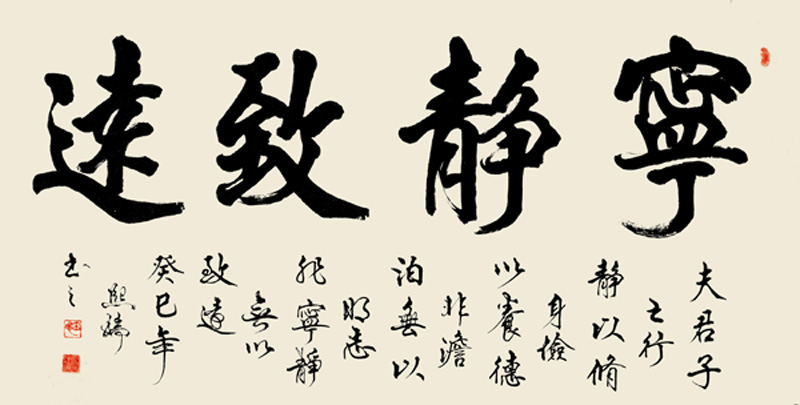 寧静致遠
夫君子
之行
静以脩
身儉
以養德
非澹
泊無以
明志
非寧静
無以
致遠
癸巳年
熙
书之